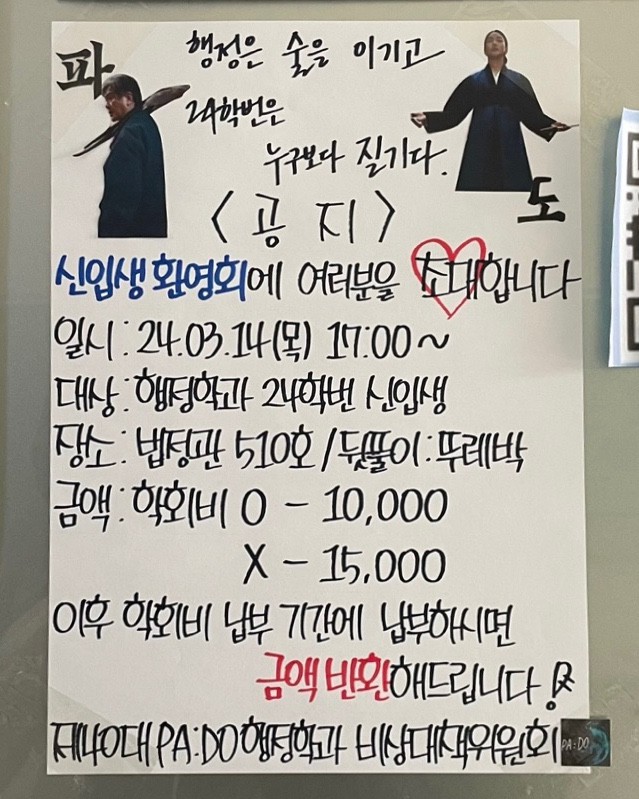 파
행정은 술을 이기고
24학번은
누구보다 질기다.
도
<공지>
신입생 환영회에 여러분을 초대합니다
일시 : 24.03.14(목) 17:00~
대상 : 행정학과 24학번 신입생
장소 : 법정관 510호 / 뒷풀이 : 뚜레박
금액 : 학회비 O - 10,000
X - 15,000
이후 학회비 납부 기간에 납부하시면
금액 반환해드립니다!
제40대 PA:DO 행정학과 비상대책위원회
PA:DO